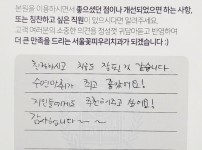 본원을 이용하시면서 좋으셨던 점이나 개선되었으면 하는 사항,
또는 칭찬하고 싶은 직원이 있으시다면 알려주세요.
고객 여러분의 소중한 의견을 정성껏 귀담아듣고 반영하여
더 큰 만족을 드리는 서울꽃피우리치과가 되겠습니다 :)
친절하시고 치료도 잘하시는 것 같습니다
수면마취가 최고 좋았어요!
지인들에게도 추천하고 싶어요!
감사합니다~